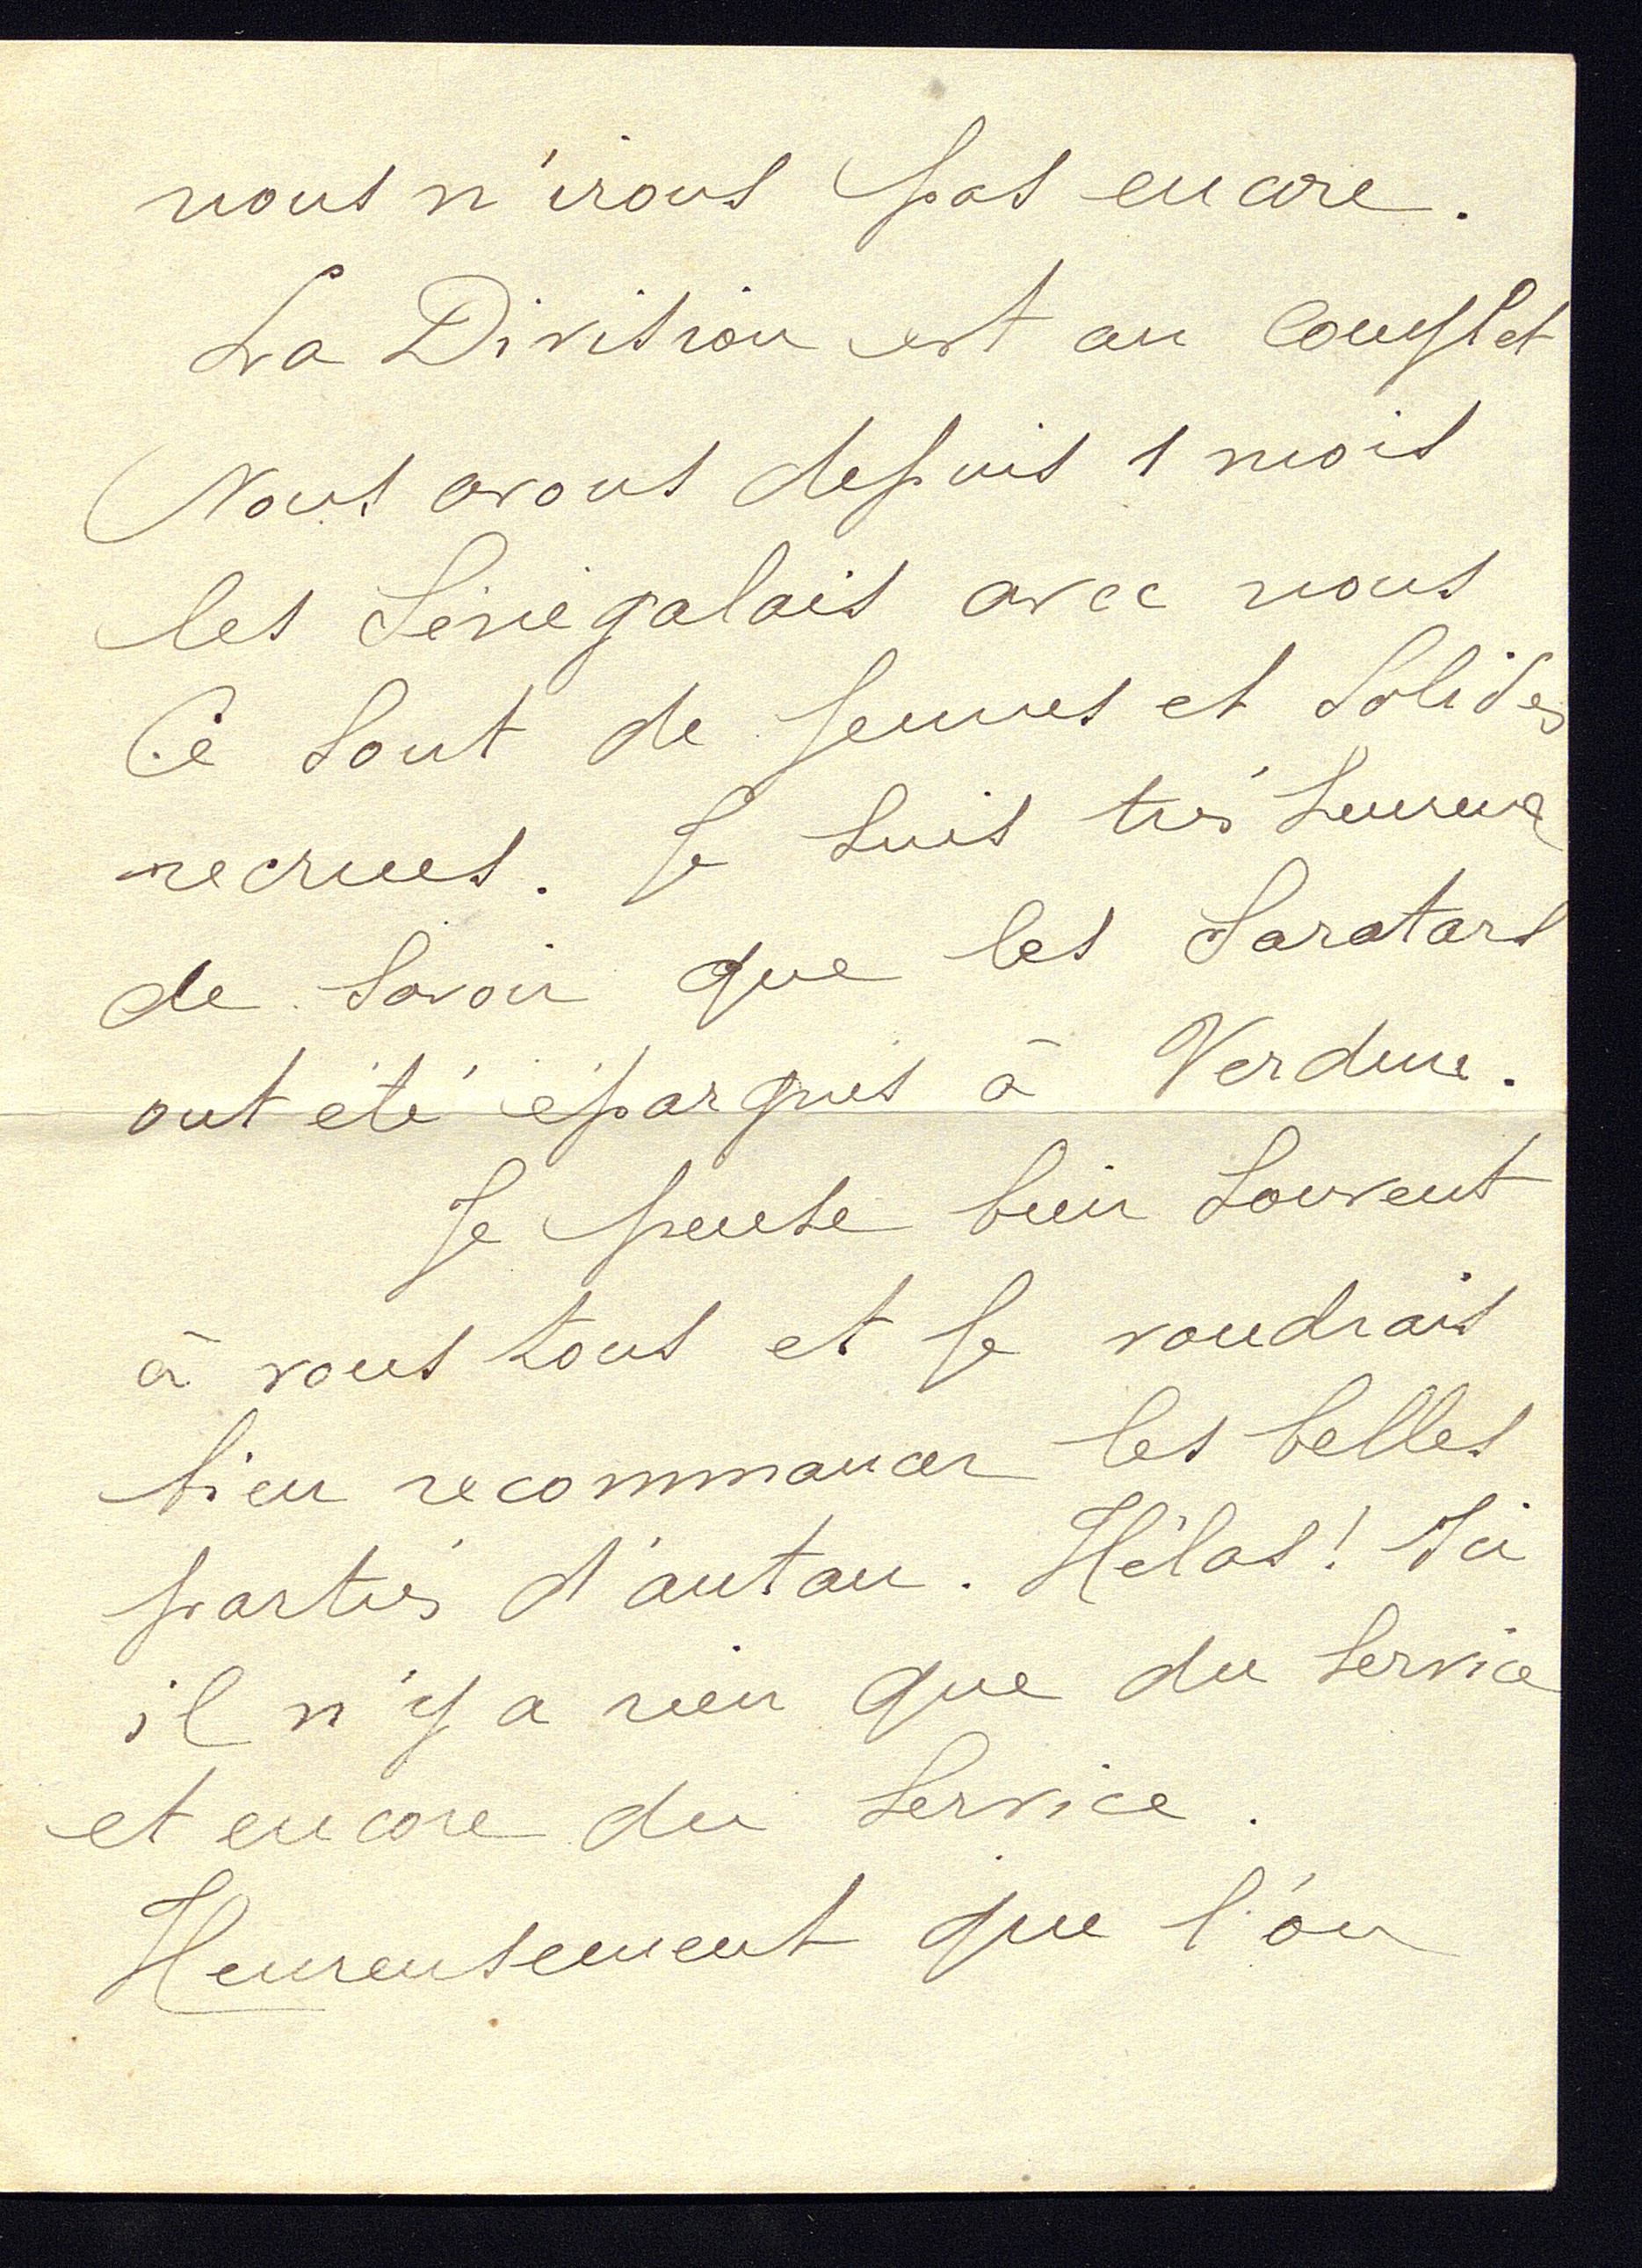 nous n'irons pas encore.
La Division est au complet
Nous avons depuis 1 mois
les Sénégalais avec nous
Ce sont de jeunes et solides
recrues. Je suis très heureux
de savoir que les Saratars
ont été épargnés à Verdun.
Je pense bien souvent
à vous tous et je voudrais
bien recommancer les belles
parties d'autan. Hélas! Ici
il n'y a rien que du service
et encore du service.
Heureusement que l'on